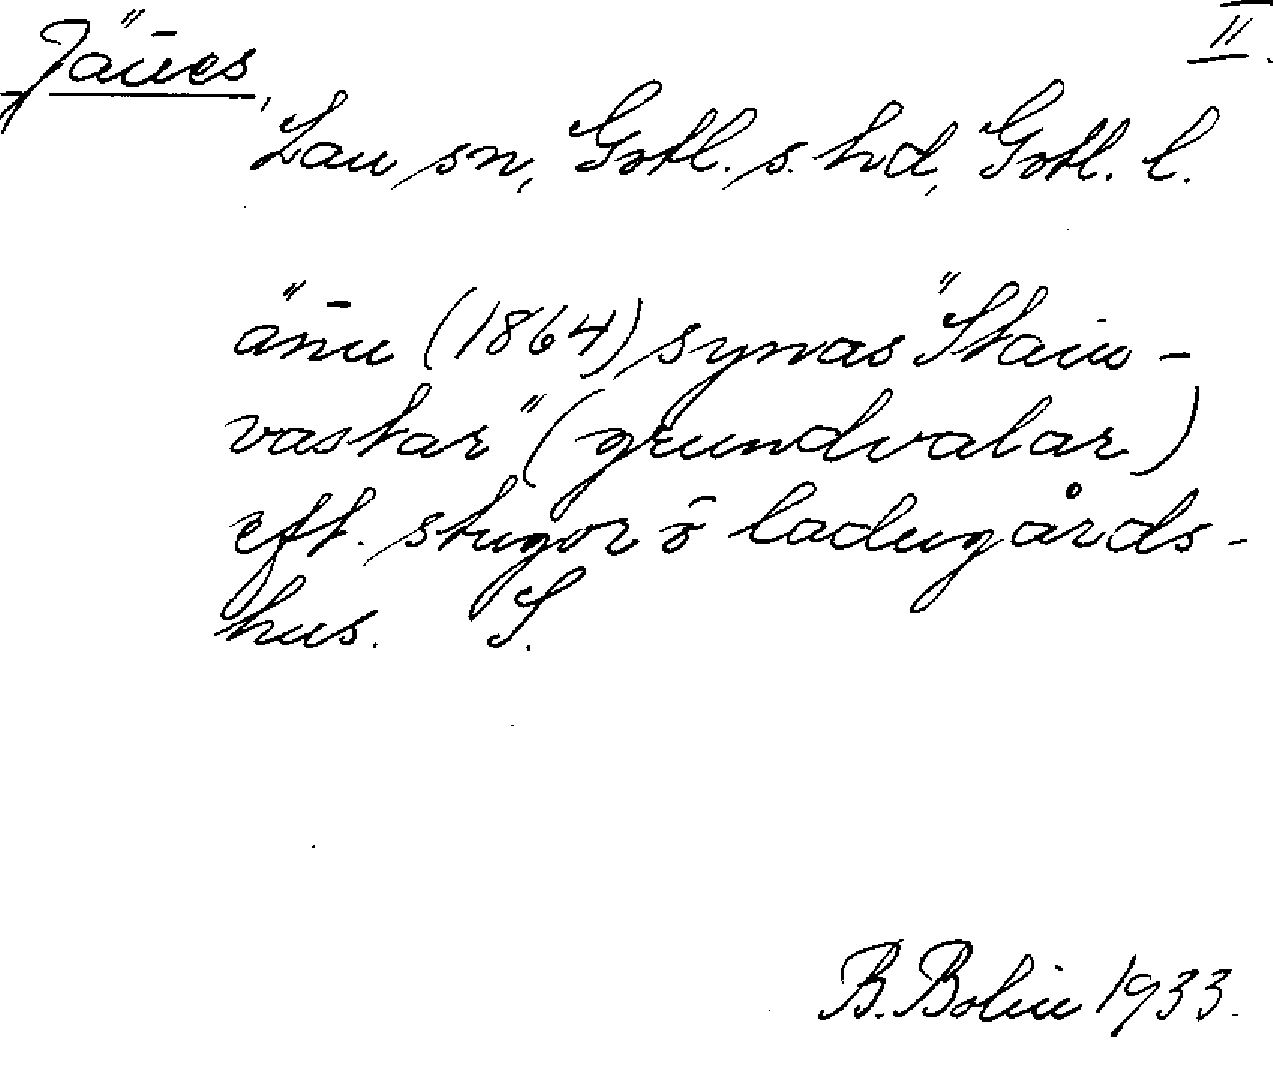 Jäues, II.
Lau sn, Gotl. s. hd, Gotl. l.
ännu (1864) synas "Stain-
vastar" (grundvalar)
eft. stugor o ladugårds-
hus. S.
B. Bolin 1933.